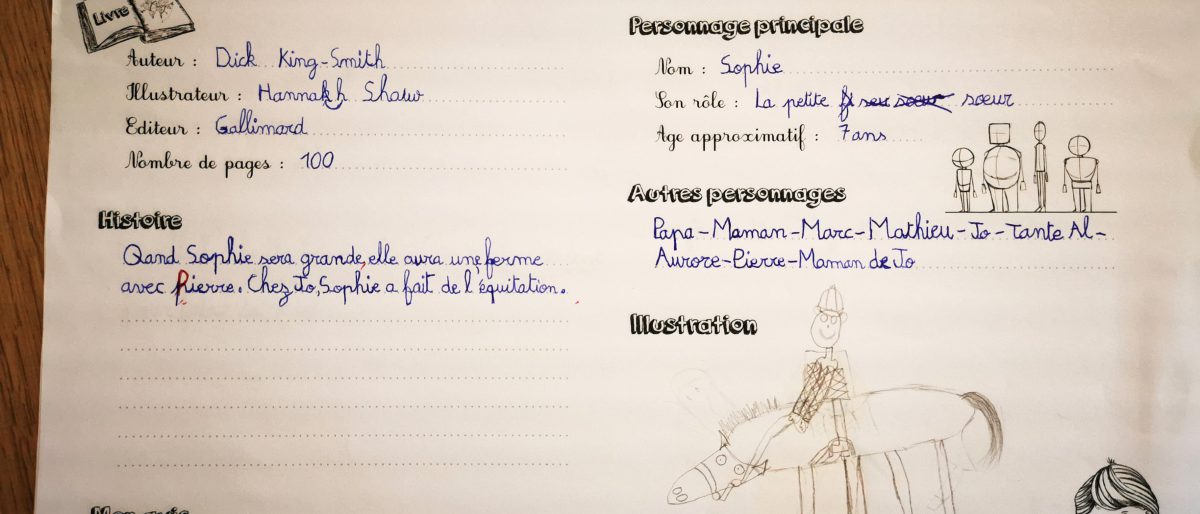 Livre
Auteur : Dick King-Smith
Illustrateur : Hannakh Shaw
Editeur : Gallimard
Nombre de pages : 100
Histoire
Qand Sophie sera grande, elle aura une ferme
avec Pierre. Chez Jo, Sophie a fait de l'équitation.
Personnage principale
Nom : Sophie
Son rôle : La petite soeur
Age approximatif : 7 ans
Autres personnages
Papa-Maman-Marc-Mathieu-Jo-Tante Al-
Aurore-Pierre-Maman de Jo
Illustration